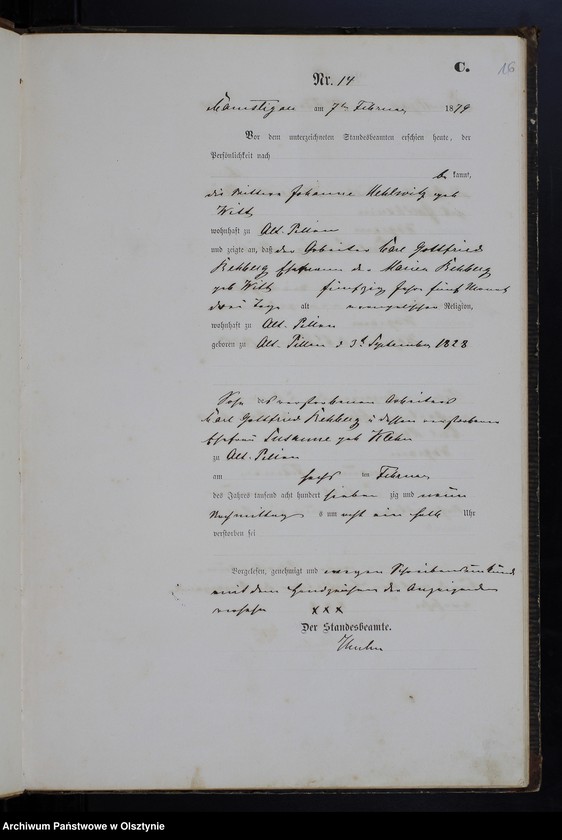 C.
16
Nr. 14
am 7ten Februar 1879
Vor dem unterzeichneten Standesbeamten erschien heute, der
Persönlichkeit nach
be kannt,
die Wittwe Johanne geb
Witt
wohnhaft zu Alt. Pillau
und zeigte an, daß der Arbeiter Carl Gottfried
Rehberg Ehemann der Maria Rehberg
geb Witt fünfzig Jahr fünf Monat
drei Tage alt evangelischer Religion,
wohnhaft zu Alt. Pillau
geboren zu Alt. Pillau d 3t September 1828
Sohn des verstorbenen Arbeiters
Carl Gottfried Rehberg u dessen verstorbenen
Ehefrau Susanne geb
zu Alt. Pillau
am sechs ten Februar
des Jahres tausend acht hundert sieben zig und neun
Nachmittags s um acht ein halb Uhr
verstorben sei
Vorgelesen, genehmigt und wegen Schreibensunkunde
mit dem Handzeichen der Anzeigenden
versehen x x x
Der Standesbeamte.
Archiwum Państwowe w Olsztynie